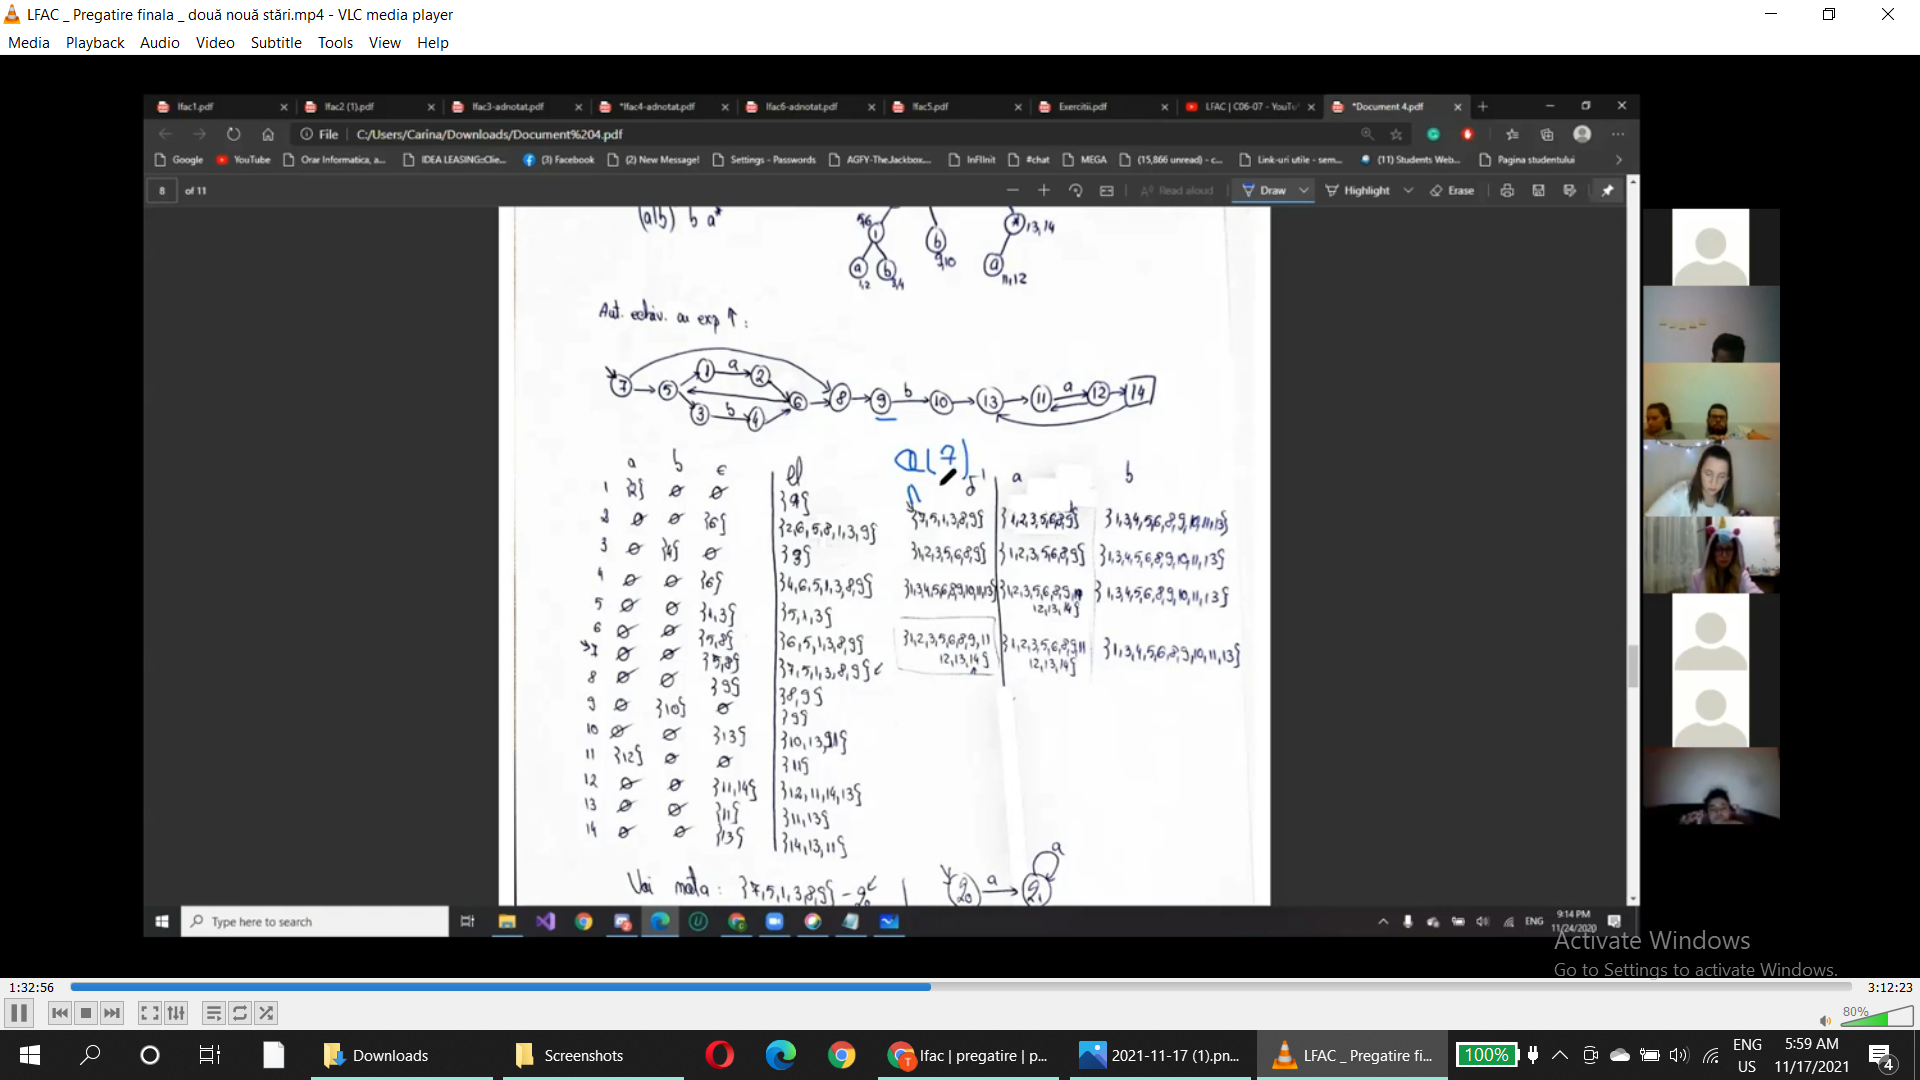 LFAC _ Pregatire finala _ două nouă stări.mp4 - VLC media player
Media Playback Audio Video Subtitle Tools View Help
lfac1.pdf lfac2 (1).pdf lfac3-adnotat.pdf *lfac4-adnotat.pdf lfac6-adnotat.pdf lfac5.pdf Exercitii.pdf LFAC | C06-07 - YouTu *Document 4.pdf
File C:/Users/Carina/Downloads/Document%204.pdf
Google YouTube Orar Informatica, a... IDEA LEASING::Clie... (3) Facebook (2) New Message! Settings - Passwords AGFY-TheJackbox... InFIInit #chat MEGA (15,866 unread) - c... Link-uri utile - sem... (11) Students Web... Pagina studentului
8 of 11 Read aloud Draw Highlight Erase
(a|b) b a*
5,6 | b 9,10 * 13,14
a 1,2 b 3,4 a 11,12
Aut. echiv. cu exp ↑:
7 5 1 a 2 3 b 4 6 8 9 b 10 13 11 a 12 14
a b ε cl
Cl(7)
δ' a b
1 {2} ∅ ∅
2 ∅ ∅ {6} {2,6,5,8,1,3,9}
3 ∅ {4} ∅ {3}
4 ∅ ∅ {6} {4,6,5,1,3,8,9}
5 ∅ ∅ {1,3} {5,1,3}
6 ∅ ∅ {5,8} {6,5,1,3,8,9}
7 ∅ ∅ {5,8} {7,5,1,3,8,9}
8 ∅ ∅ {9} {8,9}
9 ∅ {10} ∅ {9}
10 ∅ ∅ {13} {10,13,11}
11 {12} ∅ ∅ {11}
12 ∅ ∅ {11,14} {12,11,14,13}
13 ∅ ∅ {11} {11,13}
14 ∅ ∅ {13} {14,13,11}
{7,5,1,3,8,9} {1,2,3,5,6,8,9} {1,3,4,5,6,8,9,10,11,13}
{1,2,3,5,6,8,9} {1,2,3,5,6,8,9} {1,3,4,5,6,8,9,10,11,13}
{1,3,4,5,6,8,9,10,11,13} {1,2,3,5,6,8,9,11 12,13,14} {1,3,4,5,6,8,9,10,11,13}
{1,2,3,5,6,8,9,11 12,13,14} {1,2,3,5,6,8,9,11 12,13,14} {1,3,4,5,6,8,9,10,11,13}
Voi nota: {7,5,1,3,8,9} - q0
q0 a q1 a
Type here to search
ENG 9:14 PM
11/24/2020
Activate Windows
Go to Settings to activate Windows.
1:32:56 3:12:23
80%
Downloads Screenshots lfac | pregatire | p... 2021-11-17 (1).pn... LFAC _ Pregatire fi... 100% ENG 5:59 AM
US 11/17/2021 4